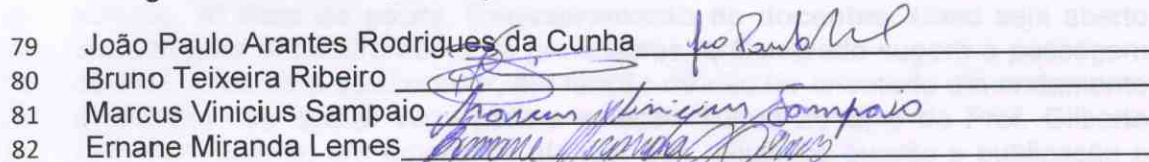 79 João Paulo Arantes Rodrigues da Cunha João Paulo
80 Bruno Teixeira Ribeiro
81 Marcus Vinicius Sampaio Marcus Vinicius Sampaio
82 Ernane Miranda Lemes Ernane Miranda Lemes